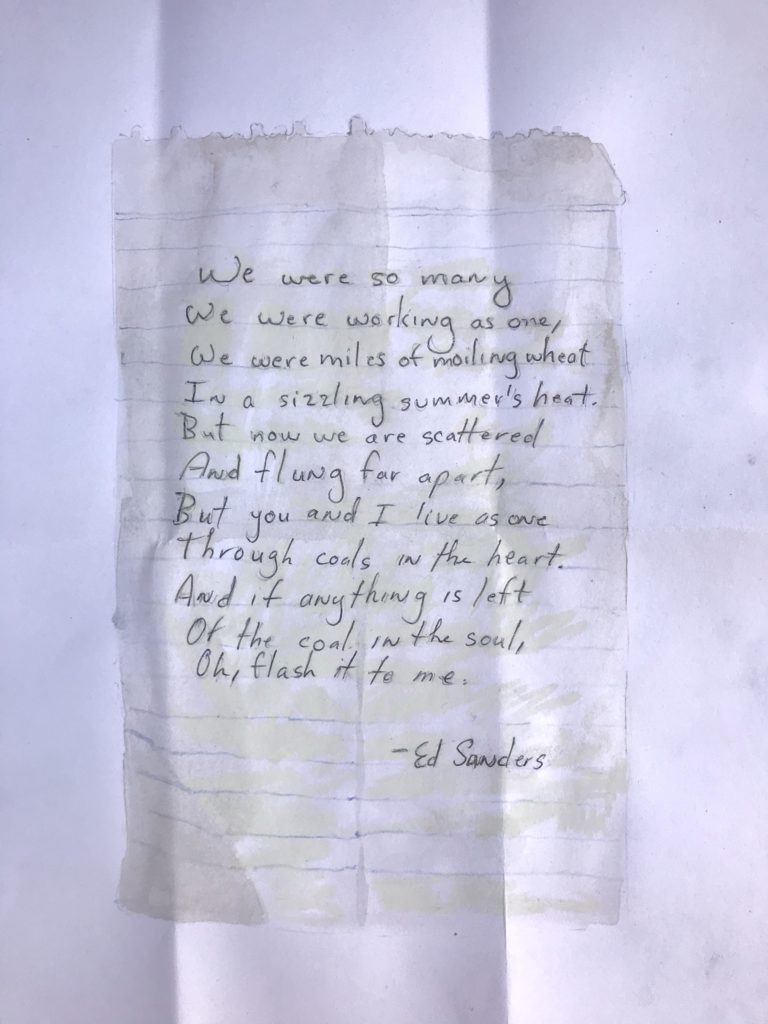 We were so many
We were working as one,
We were miles of moiling wheat
In a sizzling summer's heat.
But now we are scattered
And flung far apart,
But you and I live as one
through coals in the heart.
And if anything is left
Of the coal in the soul,
Oh, flash it to me.
-Ed Sanders